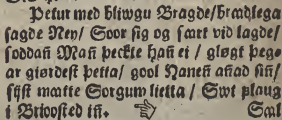 Petur med bliwgu Bragde/ brædlega
sagde Ney/ Soor sig og sært vid lagde/
soddañ Mañ þeckte hañ ei / gløgt þeg-
ar giørdest þetta/ gool Haneñ añad siñ/
sijst matte Sorgum lietta / Swt flaug
i Briosted iñ. ☞ Sæl